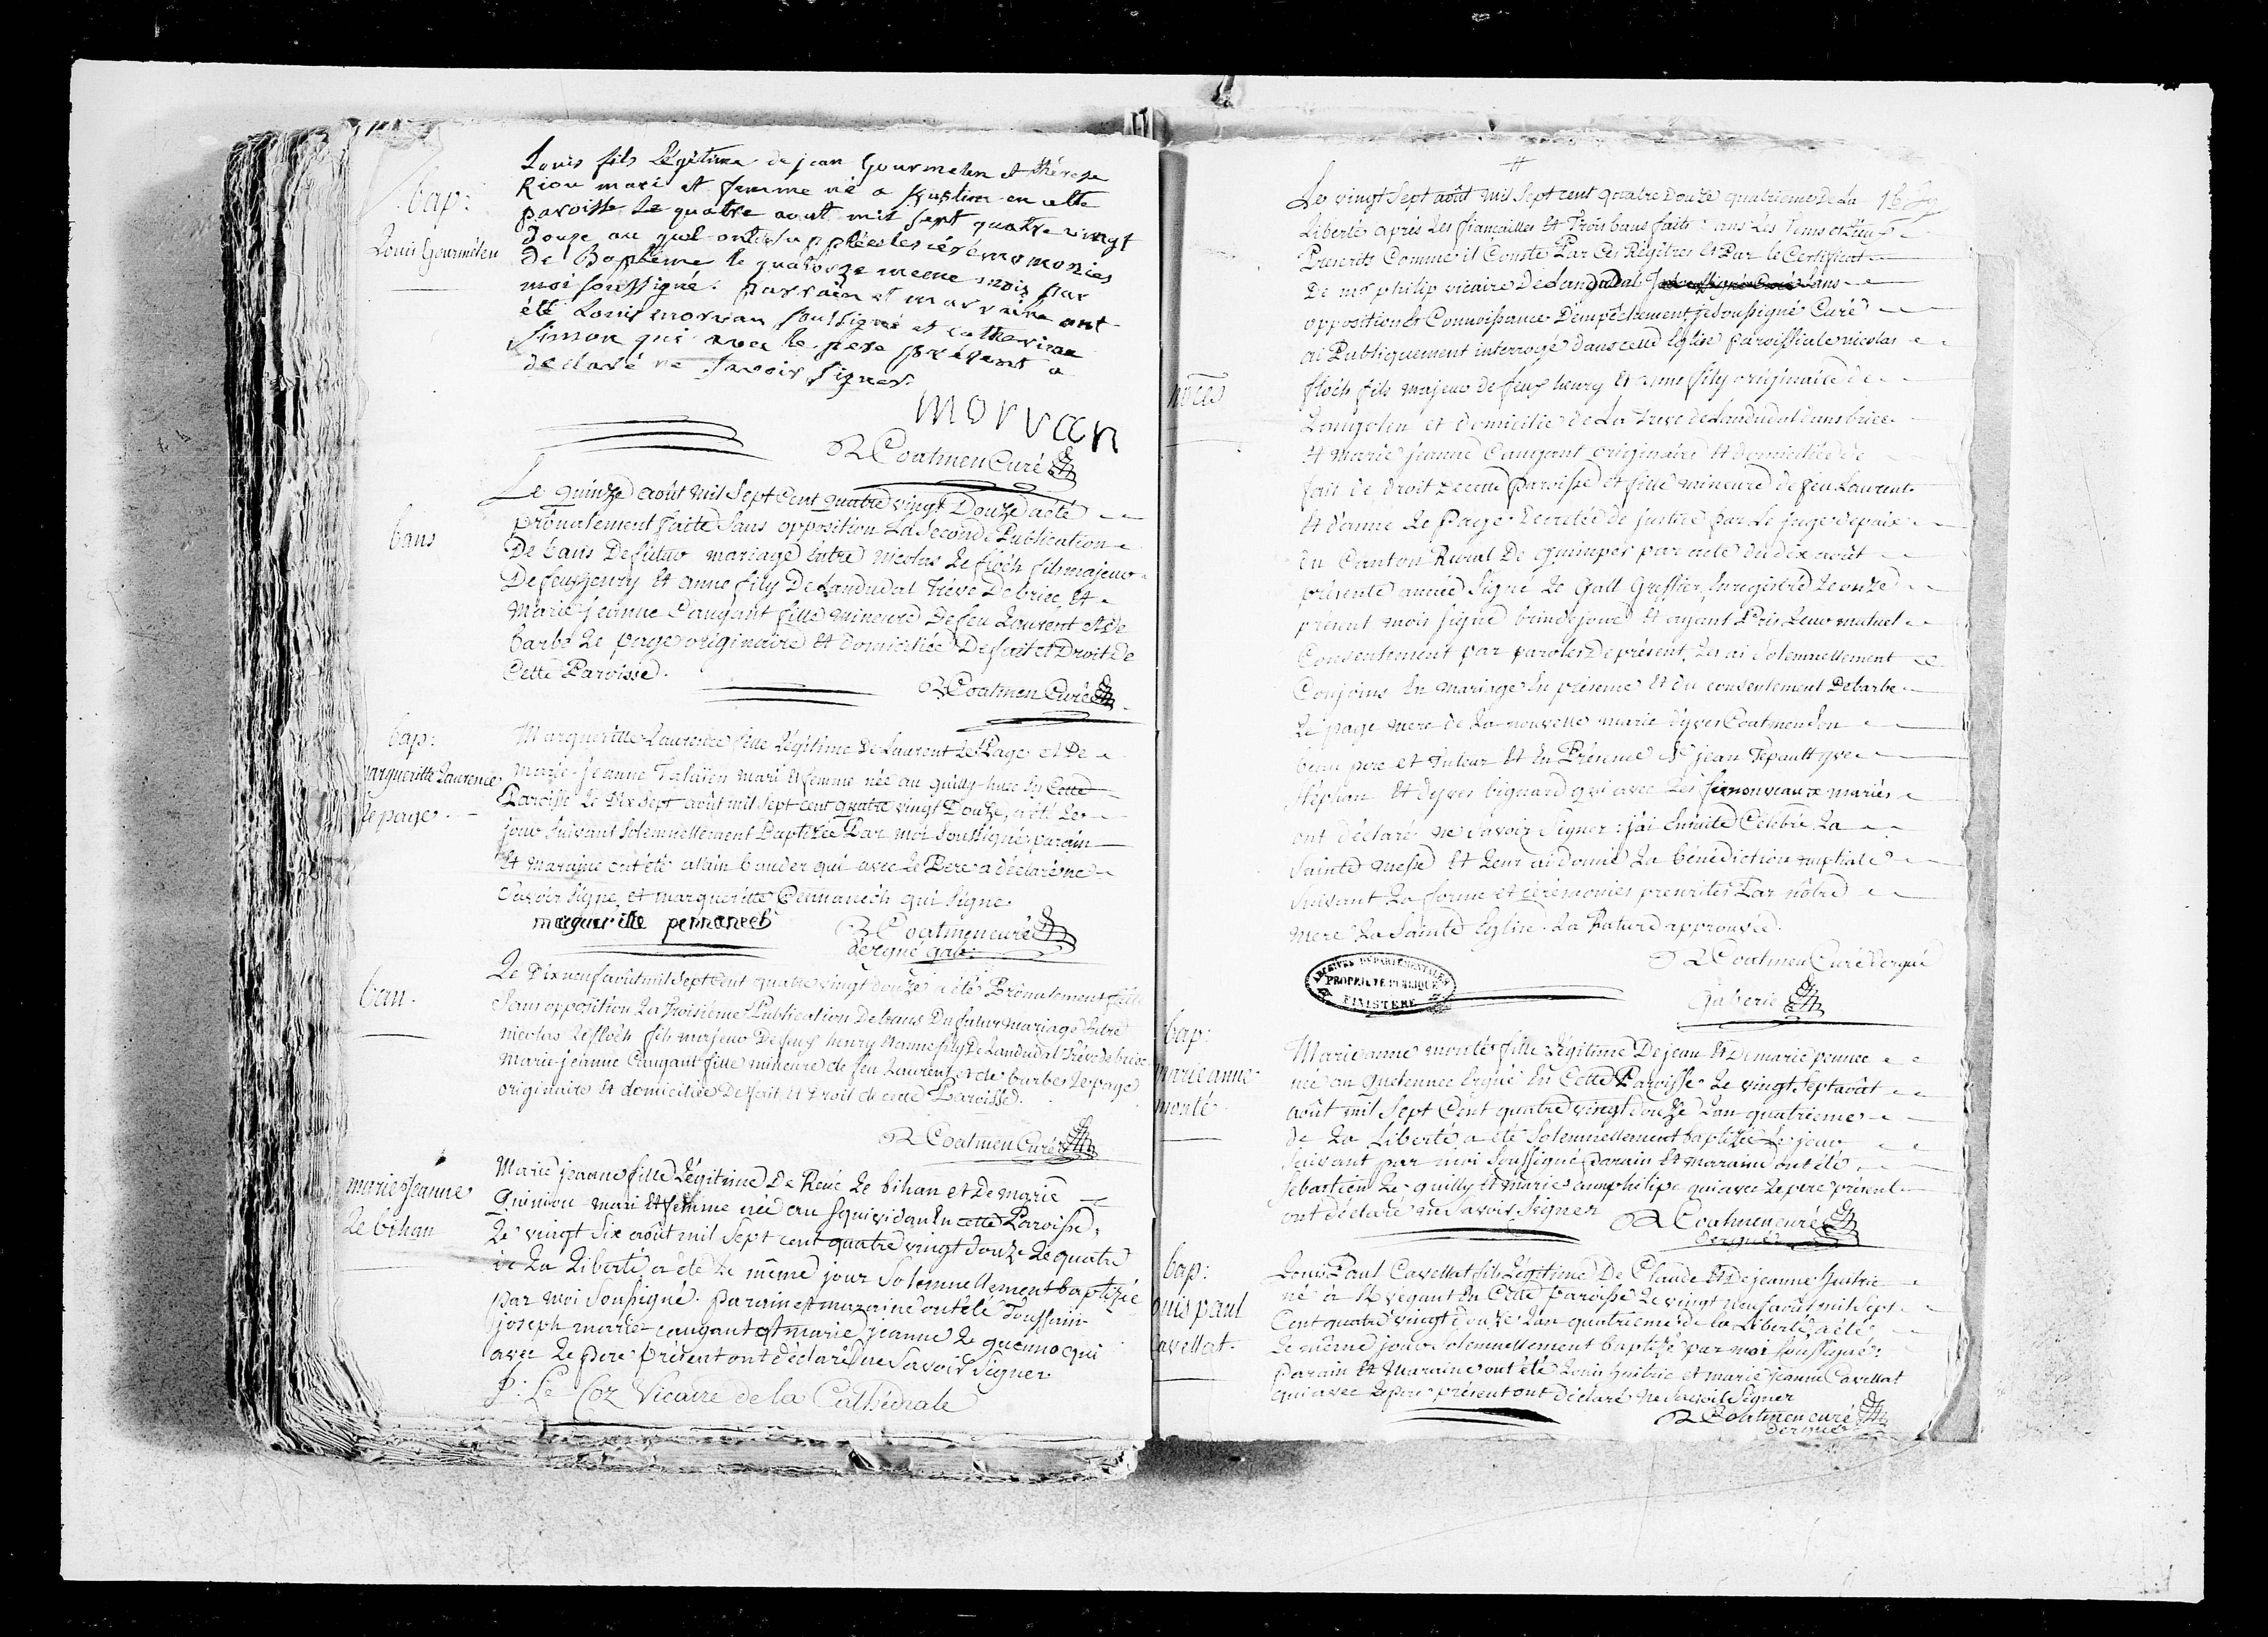 bap:
Louis Gourmelen
Louis fils Légitime de jean Gourmelen et thérese
Riou mari et femme né a Kustin en cette
paroisse le quatre aout mil sept quatre vingt
douze au quel ont suppléés les cérémomonies
de Baptême le quatorze meme mois par
moi soussigné: parrain et marraine ont
été Louis morvan soussigné et catherinne
Simon qui avec le pere présent a
déclaré ne savoir signer.
morvan
R Coatmen Curé
bans
Le quinze août mil Sept Cent quatre vingt Douze a été
prônalement faite Sans opposition La Seconde Publication
De bans De futur mariage Entre nicolas Le floch fils majeur
De feus henry Et anne fily De Landudal Trève De briec, Et
Marie-jeanne Caugant fille mineure De feu Laurent et de
barbe Le page originaire Et domiciliée De fait et Droit de
Cette Paroisse.
R Coatmen Curé
bap:
Margueritte Laurence
le page.
Margueritte Laurence fille Légitime De Laurent Le Page et De
marie-jeanne Talaïen mari Et femme née au quilly-huec En Cette
Paroisse Le Dix Sept août mil Sept cent quatre vingt Douze, a été Le
jour Suivant Solemnellement Baptizée Par moi Soussigné: parain
Et maraine ont été allain bander qui avec Le Pere a déclaré ne
Savoir Signe et margueritte Pennanech qui Signe.
margueritte pennanech
R Coatmen curé
d'ergué gab:
ban.
Le Dix neuf août mil Sept Cent quatre vingt douze a été Prônalement faite
Sans opposition La Troisième Publication De bans Du futur mariage Entre
nicolas Le floch fils majeur De feus henry Et anne fily De Landudal Trève de briec
Marie-jeanne Caugant fille mineure de feu Laurent et de barbe Le page
originaire Et domiciliée De fait Et Droit de cette Paroisse.
R Coatmen Curé
marie Jeanne
Le bihan
Marie jeanne fille Légitime De René Le bihan et De marie
Quiniou mari Et femme née au Squividan En cette Paroisse,
Le vingt Six août mil Sept cent quatre vingt douze Le quatre
de La Liberté a été Le même jour Solemnellement baptizée
par moi Soussigné. parain et maraine ont été Toussain
joseph marie caugant et marie jeanne Le guenno qui
avec Le pere Présent ont déclaré ne Savoir Signer.
J: Le Coz Vicaire de la Cathédrale
noces
Le vingt Sept août mil Sept cent quatre Douze quatrieme De La
Liberté après Les fiancailles Et Trois bans faits dans Les Tems et Lieux
Prescrits Comme il Conste Par Ces Régîtres Et Par le Certificat
De mr philip vicaire De Landudal Sans
opposition Et Connoissance D'empêchement, je Soussigné Curé
ai Publiquement interrogé dans cette Eglise paroissiale nicolas
floch fils majeur de feus henry Et anne fily originaire de
Langolen et domicilié de La Treve de Landudal dans briec
Et marie jeanne Caugant originaire Et domiciliée de
fait de droit de cette paroisse et fille mineure de feu Laurent
Et d'anne Le Page Decretée de justice par Le juge de paix
du Canton Rural De quimper par acte du dix août
présente année Signé Le Gall Greffier, Enregistré Le onze
présent mois Signé brindejonc Et ayant Pris Leur mutuel
Consentement par paroles De présent, Les ai Solemnellement
Conjoins En mariage En présence Et du consentement De barbe
Le page mere de La nouvelle marie d'yves Coatmen Son
beau pere et Tuteur Et En Présence De jean Tépault yve
Stéphan Et d'yves bignard qui avec Les nouveaux mariés
ont déclaré ne Savoir Signer: j'ai Ensuite Célébré La
Sainte messe Et Leur ai donné La bénédiction nuptiale
Suivant La forme et cérémonies prescrites Par nôtre
mere La Sainte Eglise. La Rature approuvée.
R Coatmen Curé d'ergué
Gaberic
ARCHIVES DÉPARTEMENTALES
PROPRIÉTÉ PUBLIQUE
FINISTÈRE
bap:
marie anne
monté
Marie anne monté fille Légitime De jean Et De marie
née au En Cette Paroisse Le vingt Sept août
août mil Sept Cent quatre vingt douze L'an quatrieme
de La Liberté a été Solemnellement baptizée Le jour
Suivant par moi Soussigné parain Et maraine ont été
Sebastien Le quilly Et marie anne philipe qui avec Le pere présent
ont déclaré ne Savoir Signer
R Coatmen curé
d'ergué
bap:
Louis paul
Cavellat.
Louis Paul Cavellat fils Légitime De Claude Et De jeanne Huitric
né à En Cette paroisse Le vingt neuf août mil Sept
Cent quatre vingt douze L'an quatrieme de la Liberté, a été
Le même jour Solemnellement baptizé par moi Soussigné:
Parain Et Maraine ont été Louis Huitric et marie jeanne Cavellat
qui avec Le pere présent ont déclaré Ne Savoir Signer
R Coatmen curé
d'ergué